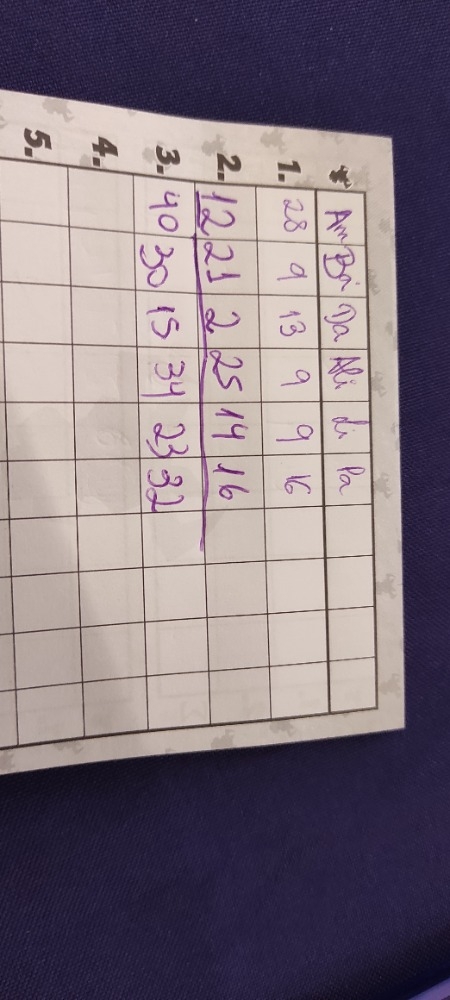 Am Bá Da Ali Li Pa
1. 28 9 13 9 9 16
2. 12 21 2 25 14 16
3. 40 30 15 34 23 32
4.
5.